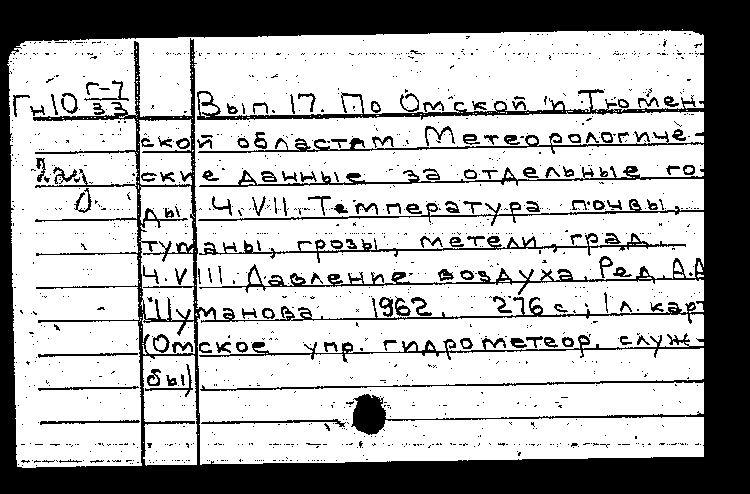 Гн10 Г-7/33 Вып. 17. По Омской и Тюмен-
ской областям. Метеорологиче-
ские данные за отдельные го-
ды. Ч. VII. Температура почвы,
туманы, грозы, метели, град.
Ч. VIII. Давление воздуха. Ред. А.А.
Шуманова. 1962. 276 с.; 1 л. карт
(Омское упр. гидрометеор. служ-
бы)